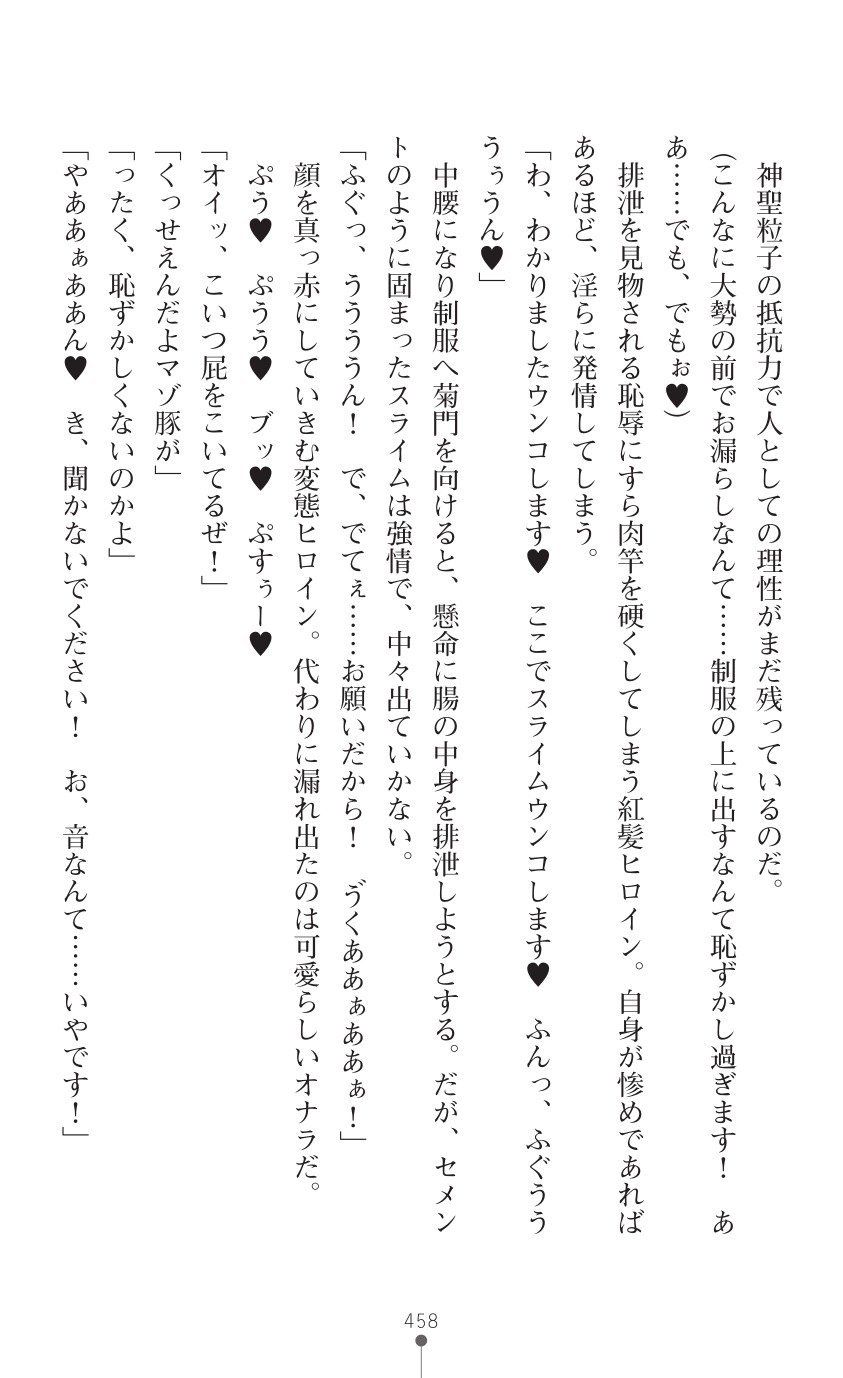 神聖粒子の抵抗力で人としての理性がまだ残っているのだ。
（こんなに大勢の前でお漏らしなんて……制服の上に出すなんて恥ずかし過ぎます！　あ
あ……でも、でもぉ♥）
　排泄を見物される恥辱にすら肉竿を硬くしてしまう紅髪ヒロイン。自身が惨めであれば
あるほど、淫らに発情してしまう。
「わ、わかりましたウンコします♥　ここでスライムウンコします♥　ふんっ、ふぐうう
うぅうん♥」
　中腰になり制服へ菊門を向けると、懸命に腸の中身を排泄しようとする。だが、セメン
トのように固まったスライムは強情で、中々出ていかない。
「ふぐっ、うううううん！　で、でてぇ……お願いだから！　ゔくああぁああぁ！」
　顔を真っ赤にしていきむ変態ヒロイン。代わりに漏れ出たのは可愛らしいオナラだ。
　ぷう♥　ぷうう♥　ブッ♥　ぷすぅー♥
「オイッ、こいつ屁をこいてるぜ！」
「くっせえんだよマゾ豚が」
「ったく、恥ずかしくないのかよ」
「やああぁああん♥　き、聞かないでください！　お、音なんて……いやです！」
458